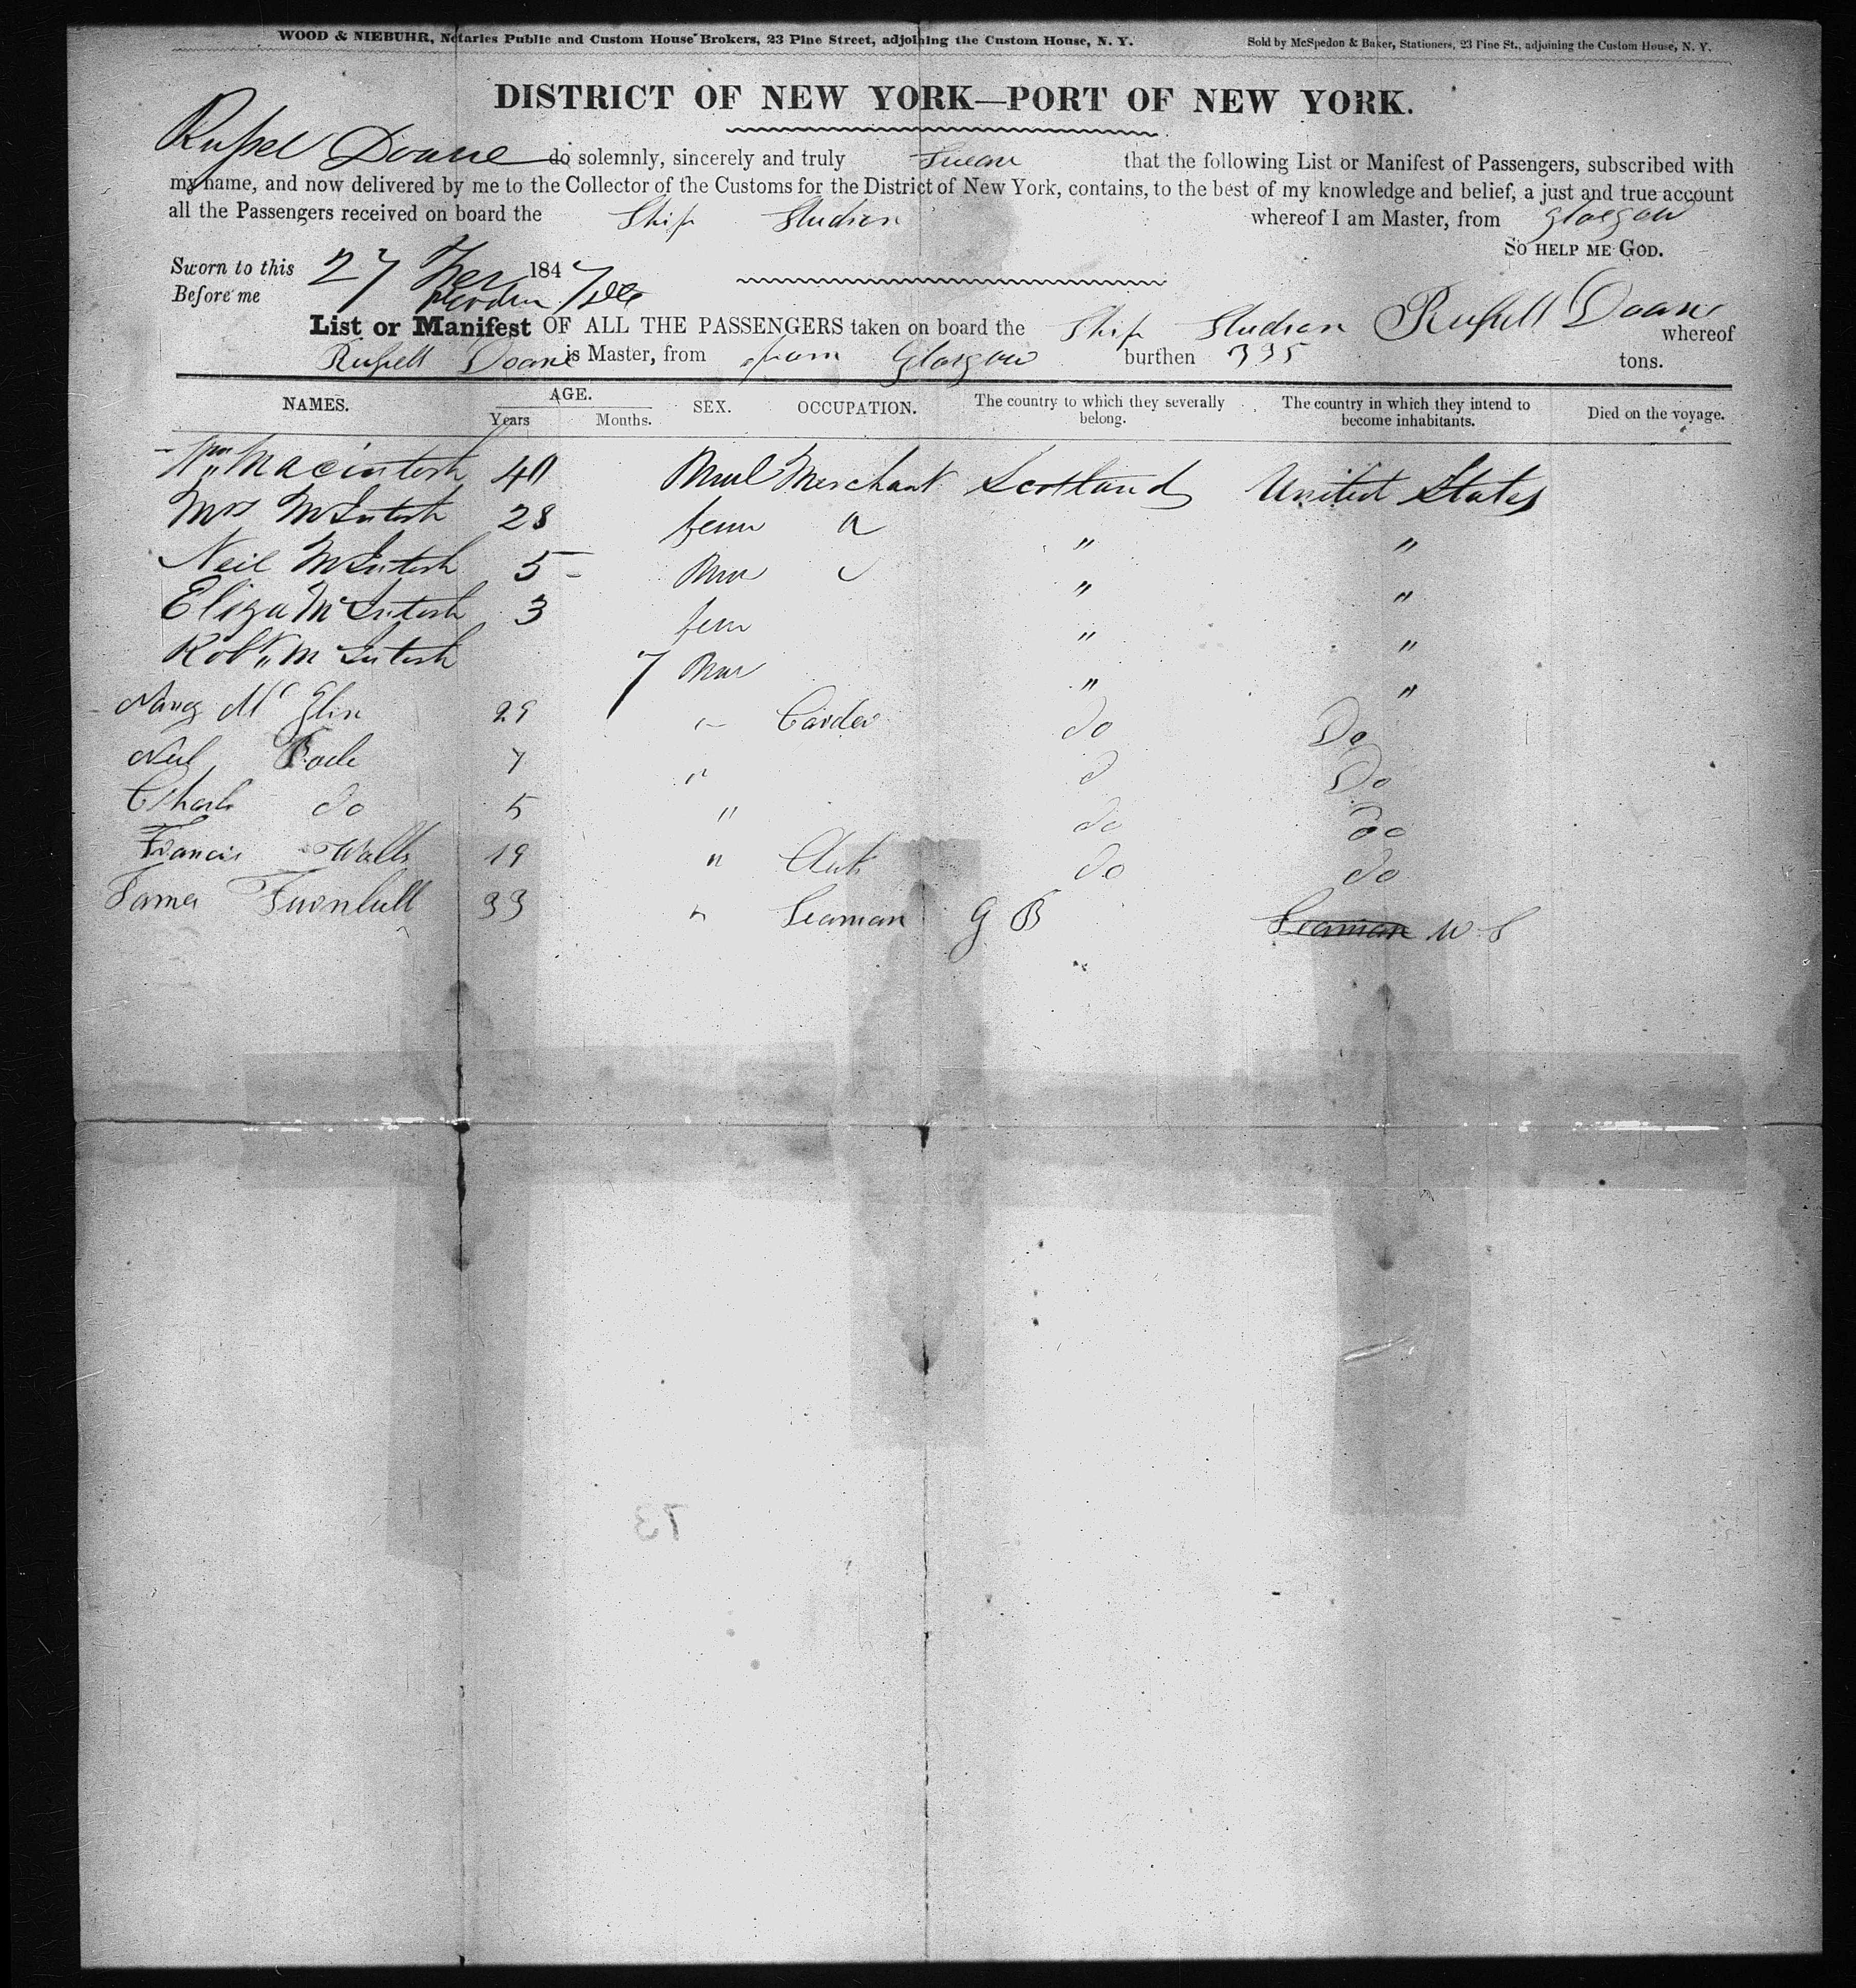 WOOD & NIEBUHR, Notaries Public and Custom House Brokers, 23 Pine Street, adjoining the Custom House, N. Y. Sold by McSpedon & Baker, Stationers, 23 Pine St., adjoining the Custom House, N. Y.
DISTRICT OF NEW YORK—PORT OF NEW YORK.
Russel Doane do solemnly, sincerely and truly Swear that the following List or Manifest of Passengers, subscribed with
my name, and now delivered by me to the Collector of the Customs for the District of New York, contains, to the best of my knowledge and belief, a just and true account
all the Passengers received on board the Ship whereof I am Master, from Glasgow
SO HELP ME GOD.
Sworn to this 27 1847
Before me
Russell Doane
List or Manifest OF ALL THE PASSENGERS taken on board the Ship whereof
Russell Doane is Master, from from Glasgow burthen 395 tons.
NAMES. AGE. Years Months. SEX. OCCUPATION. The country to which they severally belong. The country in which they intend to become inhabitants. Died on the voyage.
Wm Macintosh 40 Merchant Scotland United States
Mrs McIntosh 28 fem " "
Neil McIntosh 5 " "
Eliza McIntosh 3 fem " "
Robt McIntosh 7 " "
Mc Glin 29 Carder do Do
Neil 7 " Do
Charls do 5 " do do
Francis Walls 19 " do do
James Turnbull 33 " Seaman G B Seaman U S
73